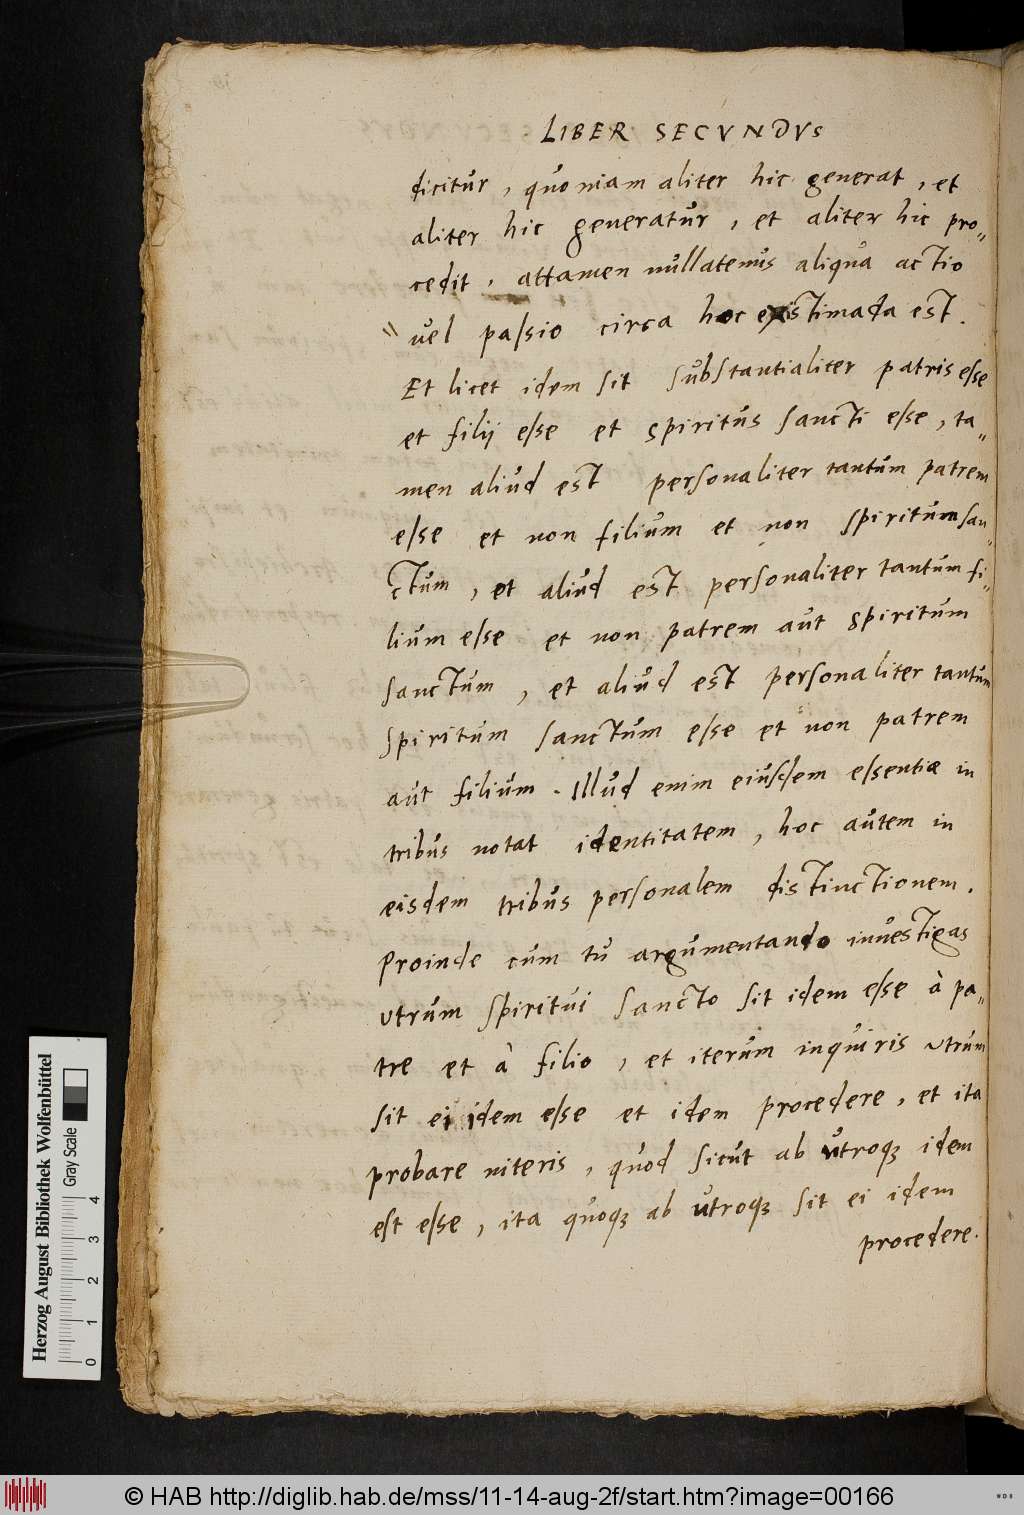 LIBER SECVNDVS
dicitur, quoniam aliter hic generat, et
aliter hic generatur, et aliter hic pro„
cedit, attamen nullatenus aliqua actio
uel passio circa hoc existimada est.
Et licet idem sit substantialiter patris esse
et filij esse et spiritus sancti esse, ta„
men aliud est personaliter tantum patrem
esse et non filium et non spiritum san„
ctum, et aliud est personaliter tantum fi„
lium esse et non patrem aut spiritum
sanctum, et aliud est personaliter tantum
spiritum sanctum esse et non patrem
aut filium. Illud enim eiusdem essentiæ in
tribus notat identitatem, hoc autem in
eisdem tribus personalem distinctionem.
Proinde cum tu argumentando inuestigas
vtrum spiritui sancto sit idem esse à pa„
tre et à filio, et iterum inquiris vtrum
sit ei idem esse et idem procedere, et ita
probare niteris, quod sicut ab utroqꝫ idem
est esse, ita quoqꝫ ab utroqꝫ sit ei idem
procedere.
Herzog August Bibliothek Wolfenbüttel
Gray Scale
0 1 2 3 4
© HAB http://diglib.hab.de/mss/11-14-aug-2f/start.htm?image=00166